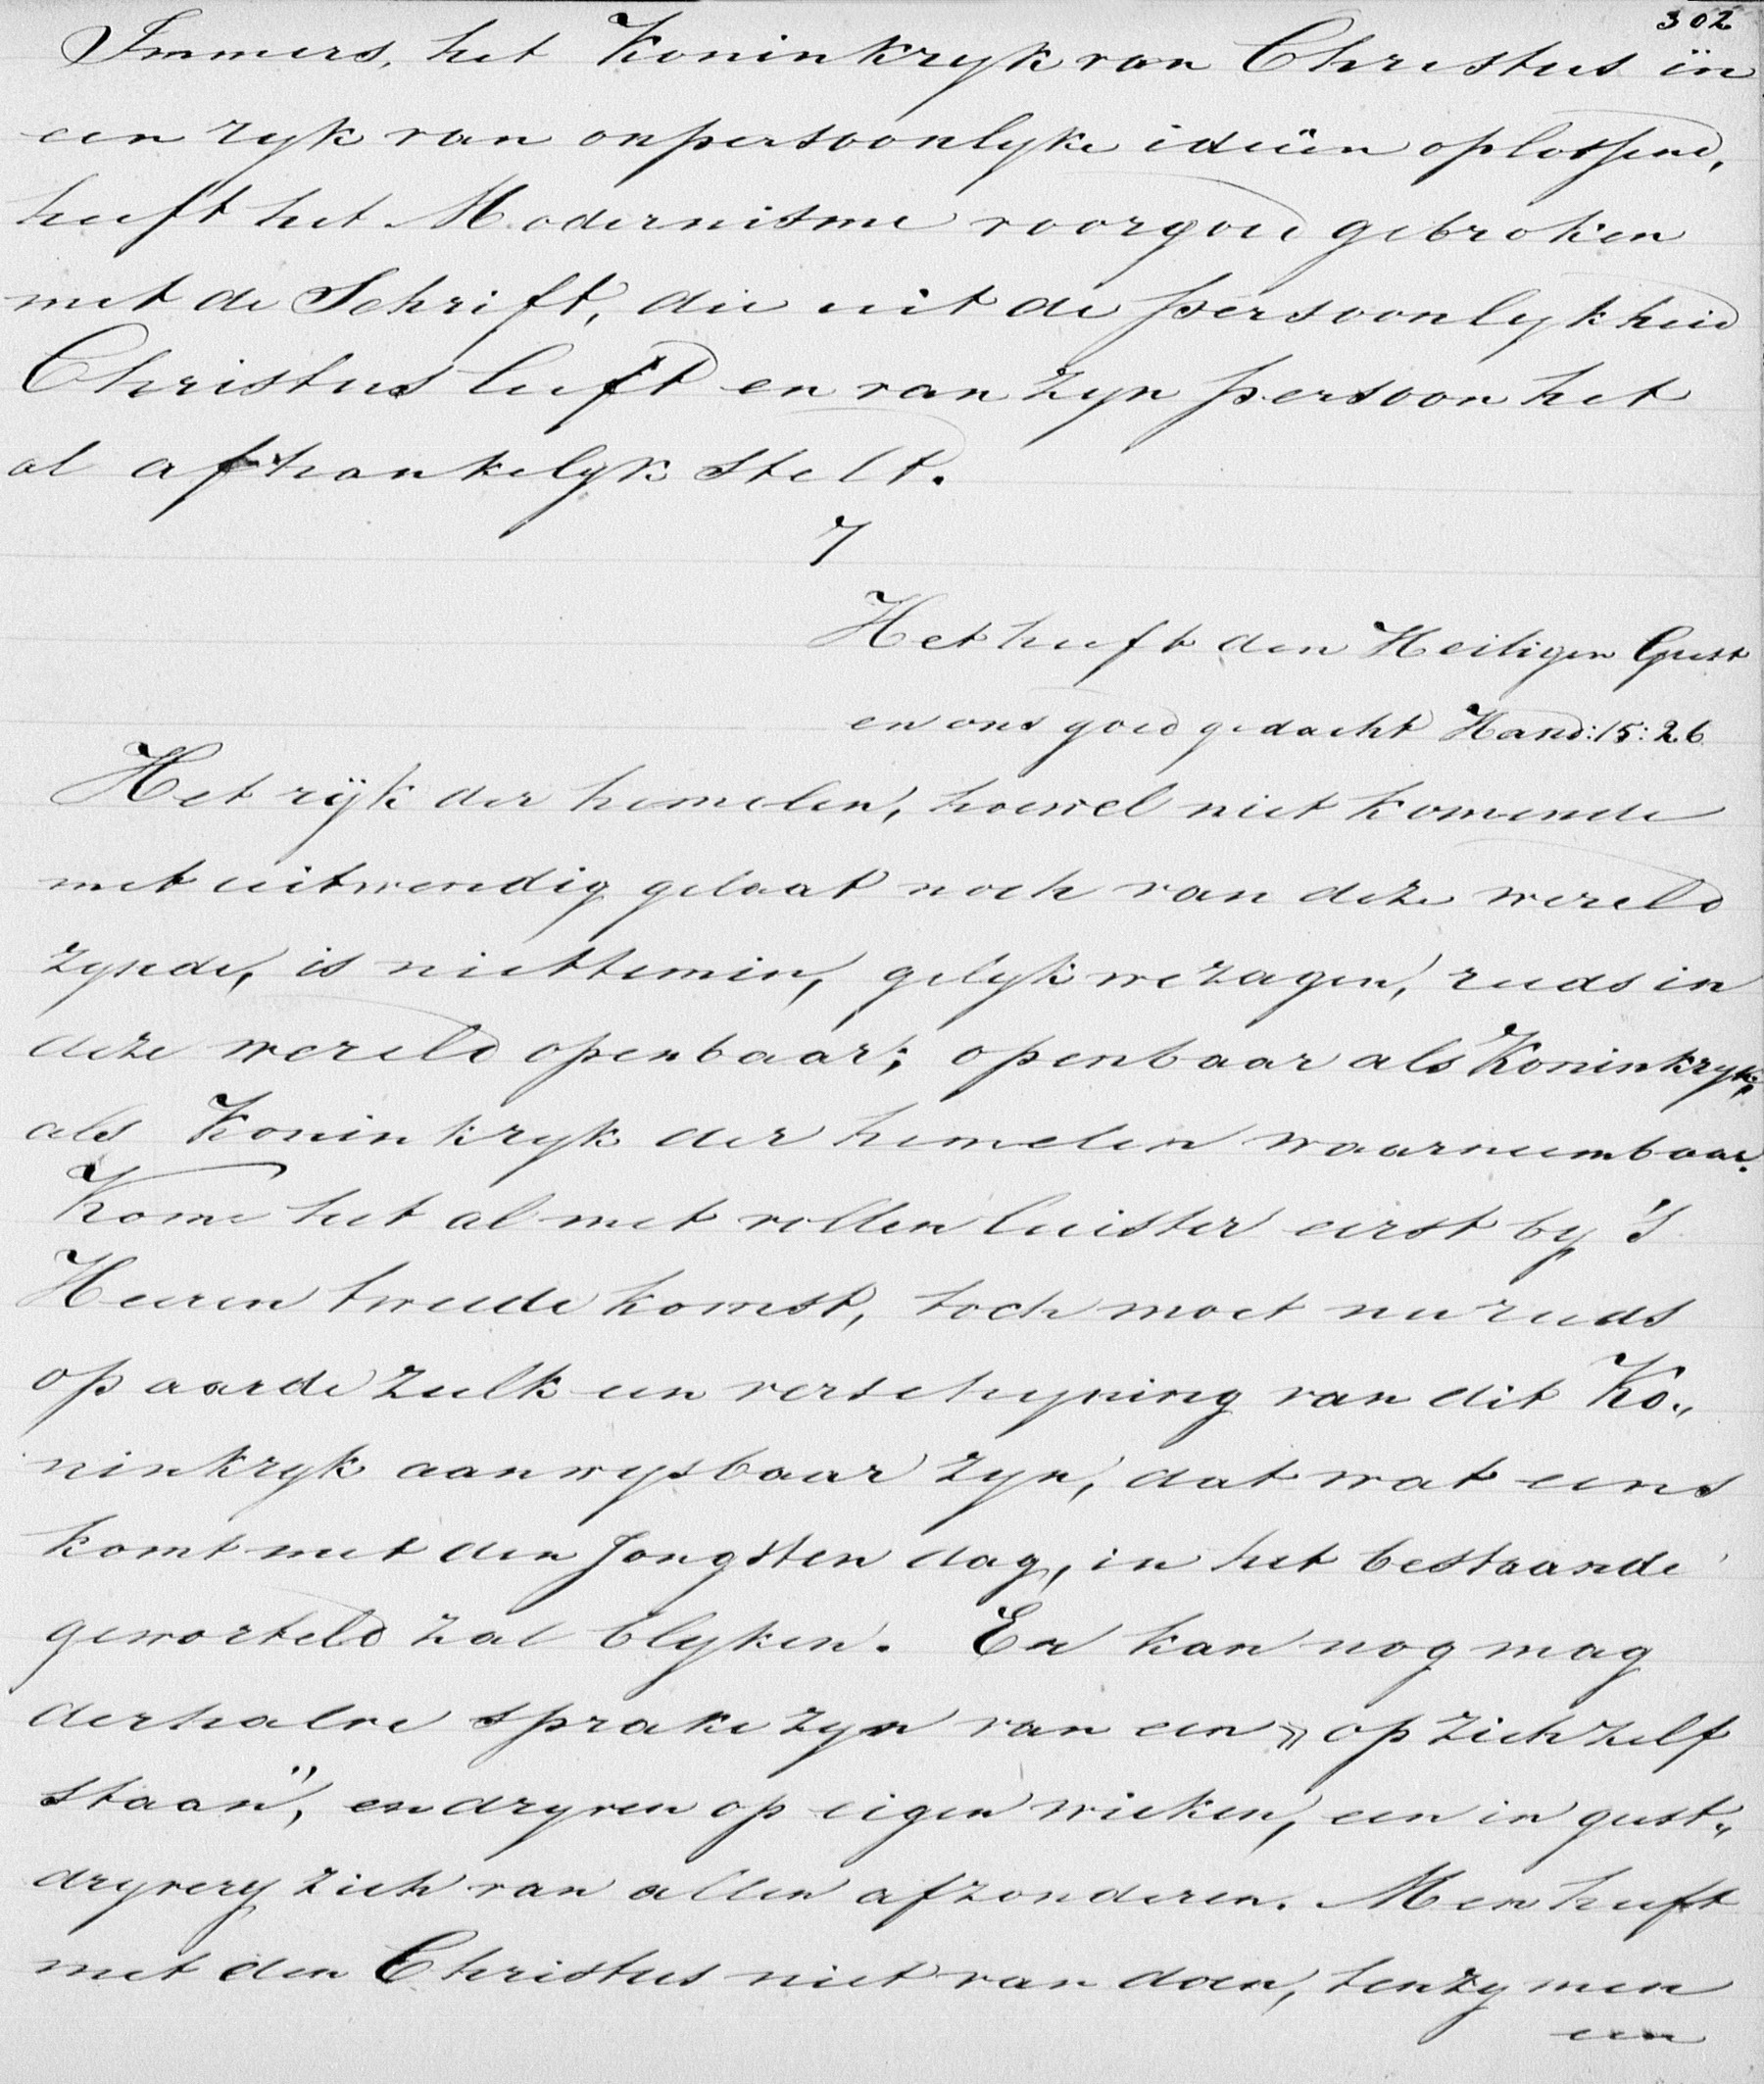 302
Immers, het Koninkryk van Christus in
een ryk van onpersoonlyke ideën oplossend,
heeft het Modernisme voorgoed gebroken
met de Schrift, die uit de persoonlykheid
Christus leeft en van zyn persoon het
al afhankelyk stelt.
7
Het heeft den Heiligen Geest
en ons goed gedacht Hand: 15: 26
Het ryk der hemelen, hoewel niet komende
met uitwendig gelaat noch van deze wereld
zynde, is niettemin, gelyk we zagen, reeds in
deze wereld openbaar; openbaar als Koninkryk,
als Koninkryk der hemelen waarneembaar.
Kome het al met vollen luister eerst by 's
Heeren tweede komst, toch moet nu reeds
op aarde zulk een verschyning van dit Ko„
ninkryk aanwysbaar zyn, dat wat eens
komt met den Jongsten dag, in het bestaande
geworteld zal blyken. En kan nog mag
derhalve sprake zyn van een „op zich zelf
staan", en dryven op eigen wieken, een in geest„
dryvery zich van allen afzonderen. Men heeft
met den Christus niet van doen, tenzy men
een